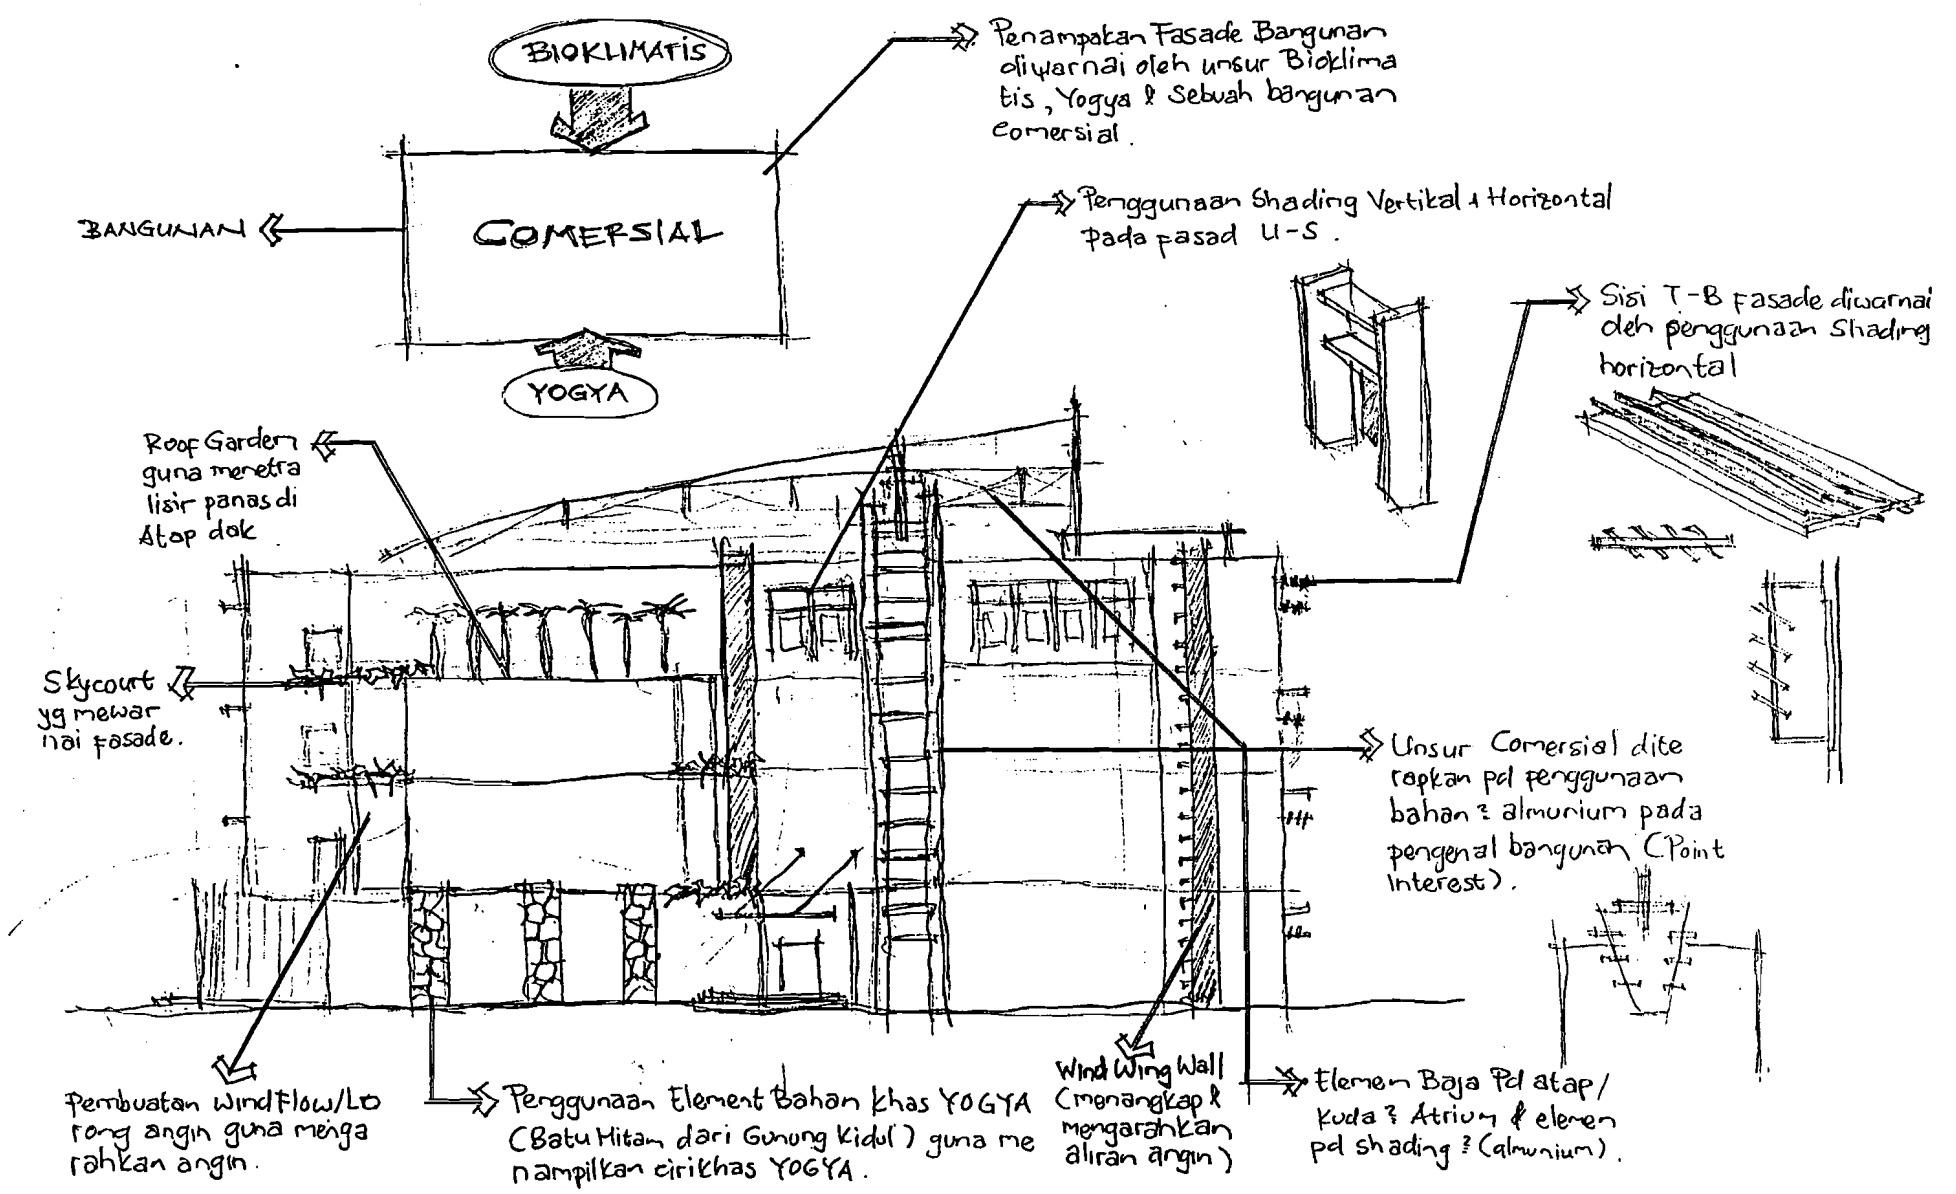 BIOKLIMATIS
Penampakan Fasade Bangunan
diwarnai oleh unsur Bioklima
tis, Yogya & Sebuah bangunan
Comersial.
BANGUNAN
COMERSIAL
YOGYA
Penggunaan Shading Vertikal + Horizontal
Pada fasad U-S.
Sisi T-B Fasade diwarnai
oleh penggunaan Shading
horizontal
Roof Garden
guna menetra
lisir panas di
Atap dak
Skycourt
yg mewar
nai fasade.
Unsur Comersial dite
rapkan pd penggunaan
bahan² almunium pada
pengenal bangunan (Point
Interest).
Pembuatan WindFlow/Lo
rong angin guna menga
rahkan angin.
Penggunaan Element Bahan khas YOGYA
(Batu Hitam dari Gunung Kidul) guna me
nampilkan cirikhas YOGYA.
Wind Wing Wall
(menangkap &
mengarahkan
aliran angin)
Elemen Baja Pd atap/
kuda² Atrium & elemen
pd shading² (almunium).